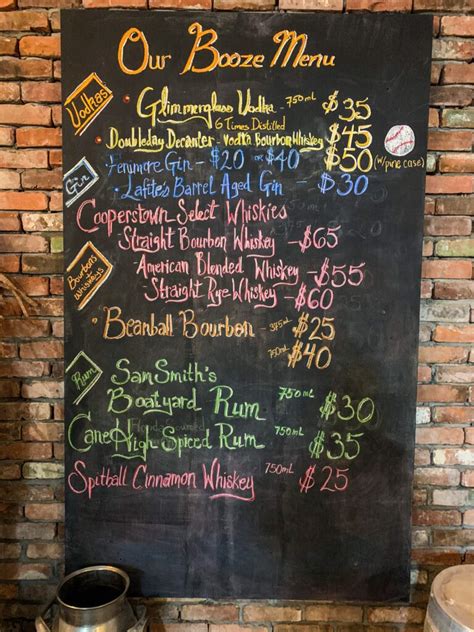 Our Booze Menu
Vodkas
Glimmerglass Vodka 750mL $35
6 Times Distilled
Doubleday Decanter - Vodka Bourbon Whiskey $45
$50 (w/pine case)
Gin
Fenimore Gin - $20 or $40
Lafite's Barrel Aged Gin - $30
Cooperstown Select Whiskies
Bourbons Whiskeys
Straight Bourbon Whiskey - $65
American Blended Whiskey - $55
Straight Rye Whiskey - $60
Beanball Bourbon - 375mL $25
750mL $40
Rum
Sam Smith's
Boatyard Rum 750mL $30
Cane High Spiced Rum 750mL $35
Spitball Cinnamon Whiskey 750mL $25